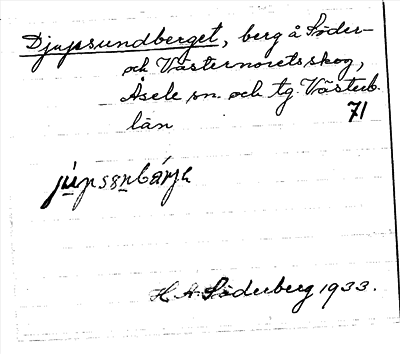 Djupsundberget, berg å Söder-
och Västernoretsskog,
Åsele sn. och tg. Västerb.
län 71
H. A. Söderberg 1933.